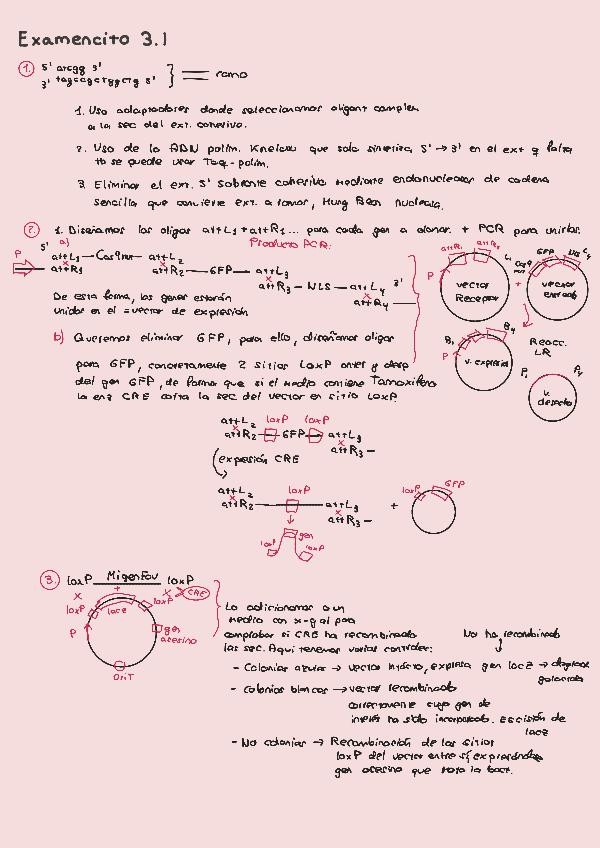 Examencito 3.1
1. 5' atcgg 3'
3' tagccgctggctg 5' } = romo
1. Uso adaptadores donde seleccionamos oligont complem
a la sec del ext. cohesivo.
2. Uso de la ADN polim. Knelow que solo sintetiza 5' → 3' en el ext q falta
tb se puede usar Taq-polim.
3. Eliminar el ext. 5' sobrante cohesivo mediante endonucleasas de cadena
sencilla que convierte ext. a romor, Mung Bean nucleasa.
2. 1. Diseñamos los oligos attL1 + attR1 ... para cada gen a clonar. + PCR para unirlos.
a)
Producto PCR:
P 5' attL1 attL2
x x
attR1 attR2 — GFP — attL3
x
attR3 — NLS — attL4 3'
x
attR4
De esta forma, los genes estarán
unidos en el vector de expresión
attR1 attR2
P vector
Receptor
+
GFP NLS L4
vector
entrada
Reacc.
LR
B1 B4
P v. expresió
P1 P4
v.
desecho
b) Queremos eliminar GFP, para ello, diseñamos oligos
para GFP, concretamente 2 sitios LoxP antes y desp
del gen GFP, de forma que si el medio contiene Tamoxifeno
la enz CRE corta la sec del vector en sitio LoxP.
attL2 loxP loxP
x
attR2 GFP attL3
x
attR3 —
expresión CRE
attL2 loxP
x
attR2 attL3
x
attR3 —
+ loxP GFP
gen
loxP loxP
3. loxP MigenFav loxP
x + x CRE
loxP lacZ loxP
P gen
asesino
OriT
Lo adicionamos a un
medio con x-gal para
comprobar si CRE ha recombinado
las sec. Aquí tenemos varios controles: No ha recombinado
- Colonias azules → vector intacto, expresa gen lacZ → degrada
galactosida
- Colonias blancas → vector recombinado
correctamente cuyo gen de
interés ha sido incorporado. Escisión de
lacZ
- No colonias → Recombinación de los sitios
loxP del vector entre sí, expresándose
gen asesino que mata la bact.